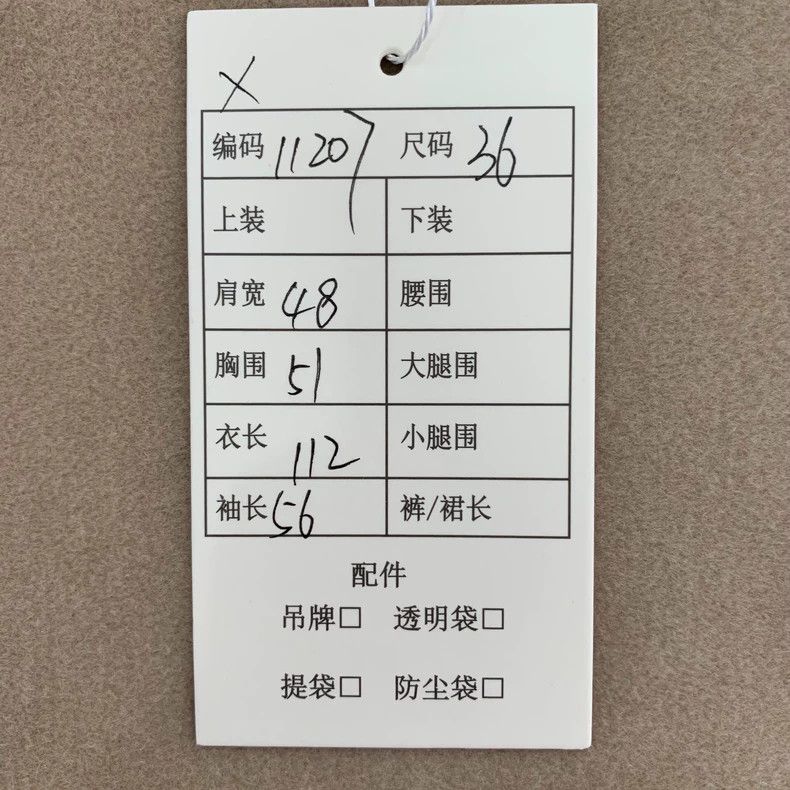 X
编码 11207 尺码 36
上装 下装
肩宽 48 腰围
胸围 51 大腿围
衣长 112 小腿围
袖长 56 裤/裙长
配件
吊牌□ 透明袋□
提袋□ 防尘袋□